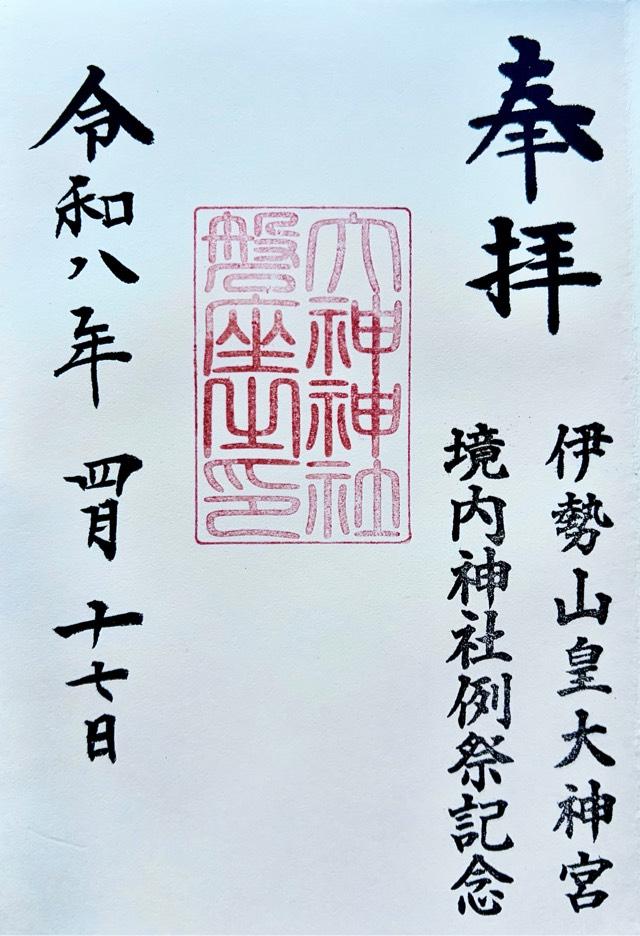 奉拝
伊勢山皇大神宮
境内神社例祭記念
大神神社
磐座之印
令和八年 四月 十七日